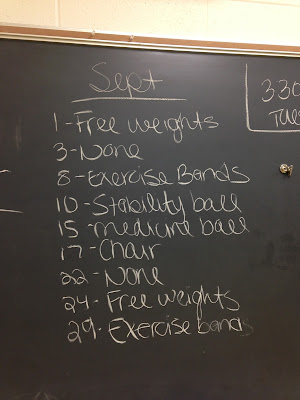 Sept
1-Free weights
3-None
8-Exercise Bands
10-Stability ball
15-medicine ball
17-Chair
22-None
24-Free weights
29-Exercise bands
330
Tues